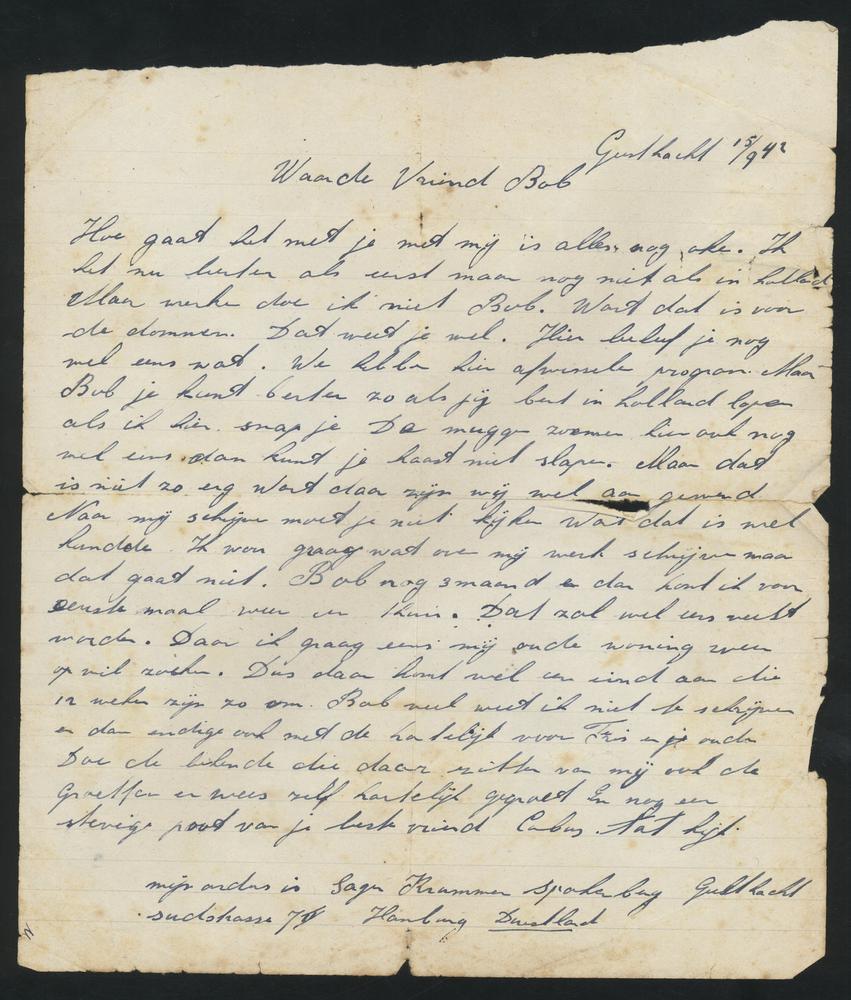 Geesthacht 15/9 42
Waarde Vriend Bob
Hoe gaat het met je met mij is alles nog oke. Ik
het nu beter als eerst maar nog niet als in holland
Maar werke doe ik niet Bob. Want dat is voor
de dommen. Dat weet je wel. Hier beleef je nog
wel eens wat. We hebbe hier afwissele program. Maar
Bob je kunt beter zo als jij bent in holland lope
als ik hier snap je De mugge zoemen hier ook nog
wel eens dan kunt je haast niet slape. Maar dat
is niet zo erg Want daar zijn wij wel aan gewend
Naar mij schijve moet je niet kijke Want dat is met
hundde. Ik wou graag wat over mij werk schrijve maar
dat gaat niet. Bob nog 3 maand e dan komt ik voor
eerste maal weer in thuis. Dat zal wel eens
worde. Daar ik graag eens mij oude woning weer
op wil zoeke. Dus daar komt wel een eind aan die
12 weken zijn zo om. Bob veel weet ik niet te schrijve
e dan endige ook met de hartelijk voor e je oude
Doe de bekende die daar zitten van mij ook de
Groetten e wees zelf hartelijk gegroet En nog een
stevige poot van je beste vriend Cobus. Nat kijk
mijn ardes is Lager Krummer Spakenberg Geesthacht
sudstrasse Hamburg Duestland